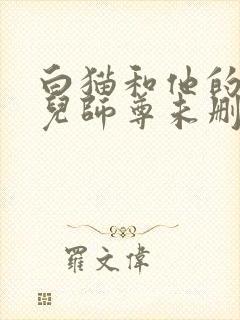 白猫和他的
兒師尊未刪
羅文偉